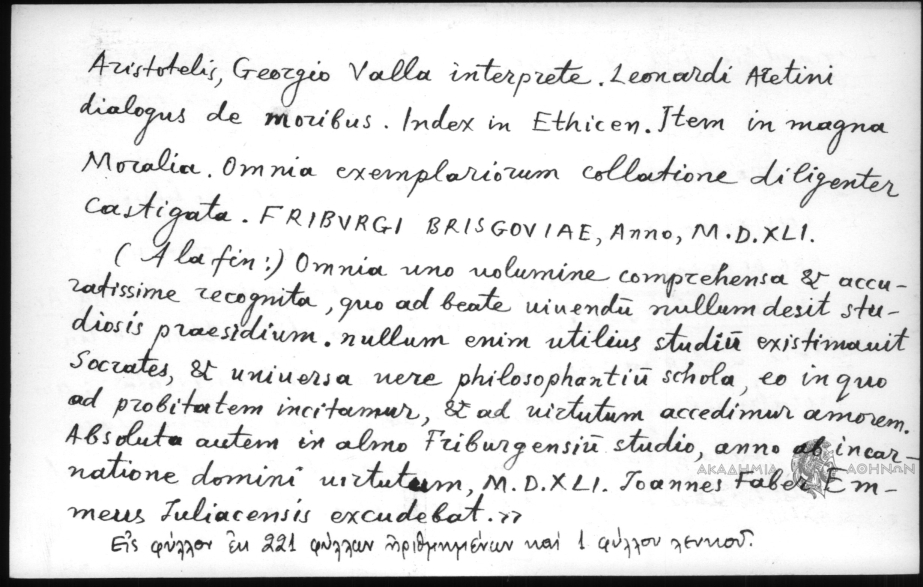 Aristotelis, Georgio Valla interprete. Leonardi Aretini
dialogus de moribus. Index in Ethicen. Item in magna
Moralia. Omnia exemplariorum collatione diligenter
castigata. FRIBVRGI BRISGOVIAE, Anno, M.D.XLI.
(A la fin:) Omnia uno uolumine comprehensa & accu-
ratissime recognita, quo ad beate uiuendū nullum desit stu-
diosis praesidium. nullum enim utilius studiū existimauit
Socrates, & uniuersa uere philosophantiū schola, eo in quo
ad probitatem incitamur, & ad uirtutum accedimur amorem.
Absoluta autem in almo Friburgensiū studio, anno ab incar-
natione domini uirtutum, M.D.XLI. Ioannes Faber Em-
meus Iuliacensis excudebat.»
Εἰς φύλλον ἐκ 221 φύλλων ἠριθμημένων καὶ 1 φύλλου λευκοῦ.
ΑΚΑΔΗΜΙΑ ΑΘΗΝΩΝ